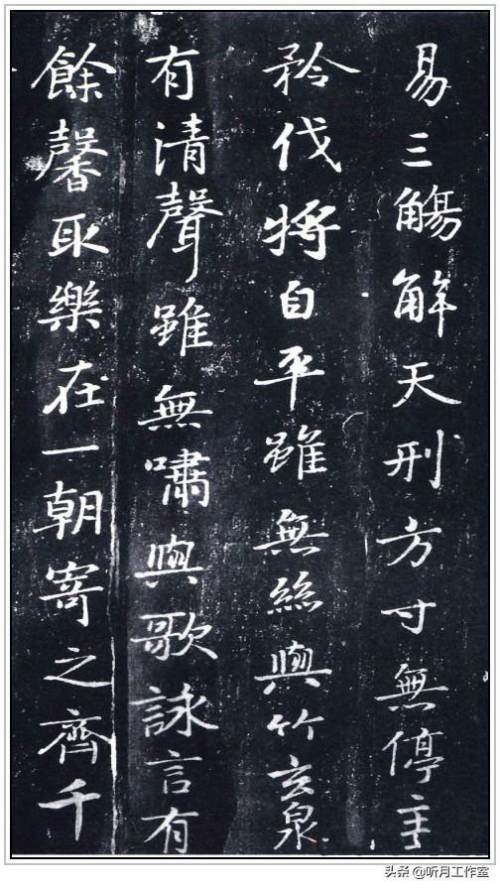 易三觴解天刑方寸無停主
矜伐將自平雖無絲與竹玄泉
有清聲雖無嘯與歌詠言有
餘馨取樂在一朝寄之齊千
头条 @听月工作室